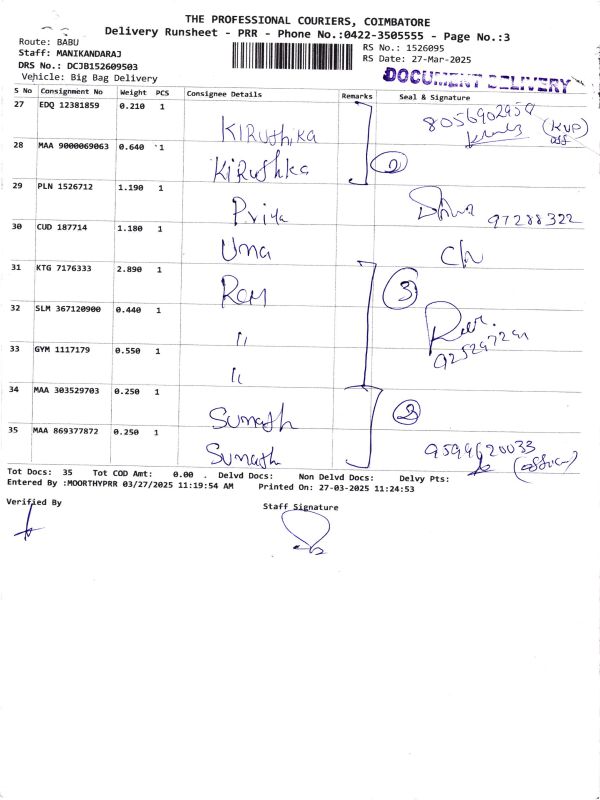 THE PROFESSIONAL COURIERS, COIMBATORE
Delivery Runsheet - PRR - Phone No.:0422-3505555 - Page No.:3
Route: BABU
Staff: MANIKANDARAJ
DRS No.: DCJB152609503
Vehicle: Big Bag Delivery
RS No.: 1526095
RS Date: 27-Mar-2025
DOCUMENT DELIVERY
S No Consignment No Weight PCS Consignee Details Remarks Seal & Signature
27 EDQ 12381859 0.210 1 KIRUthiKa 8056902959 (KVP)
28 MAA 9000069063 0.640 1 KiRUshka 2
29 PLN 1526712 1.190 1 Priya 97288322
30 CUD 187714 1.180 1 Uma
31 KTG 7176333 2.890 1 Ram 3
32 SLM 367120900 0.440 1 "
33 GYM 1117179 0.550 1 "
34 MAA 303529703 0.250 1 Sumath 2
35 MAA 869377872 0.250 1 Sumath 9599620033
Tot Docs: 35 Tot COD Amt: 0.00 . Delvd Docs: Non Delvd Docs: Delvy Pts:
Entered By :MOORTHYPRR 03/27/2025 11:19:54 AM Printed On: 27-03-2025 11:24:53
Verified By
Staff Signature